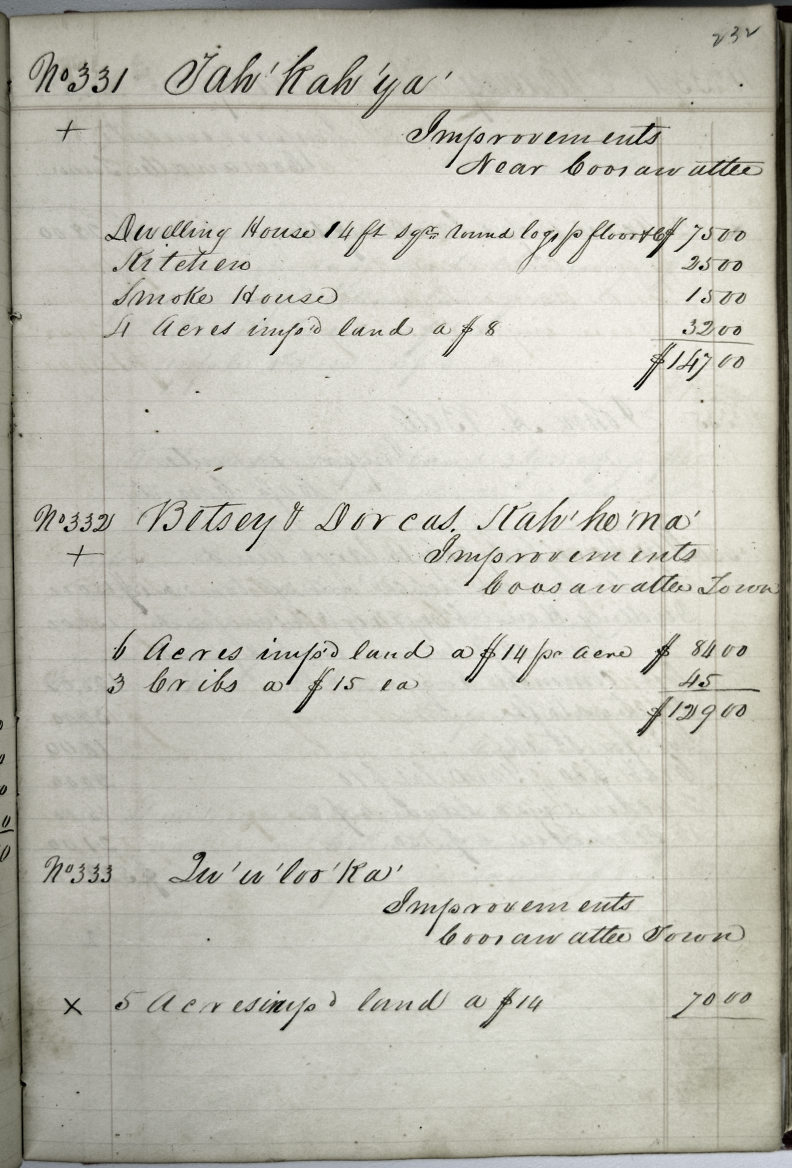 232
No 331 Tah' kah' ya'
+ Improvements
Near Coosawattee
Dwelling House 14 ft sqr round logs p floor &c $ 75 00
Kitchen 25 00
Smoke House 15 00
4 Acres imp'd land a $ 8 32 00
$ 147 00
No 332 Betsey & Dorcas. Kah' he' na'
+ Improvements
Coosawattee Town
6 Acres imp'd land a $14 pr acre $ 84 00
3 Cribs a $15 ea 45
$ 129 00
No 333 Qu' u' loo' ka'
Improvements
Coosawattee Town
x 5 Acres imp'd land a $14 70 00